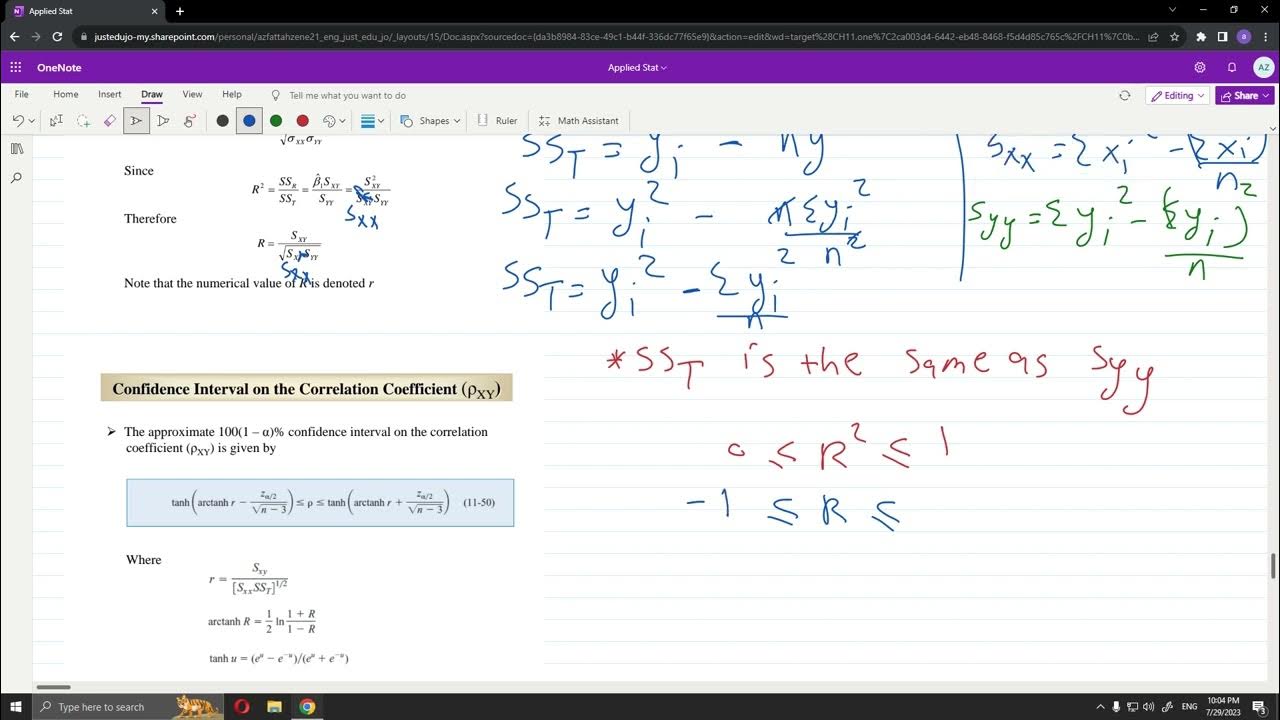 Applied Stat
justedujo-my.sharepoint.com/personal/azfattahzene21_eng_just_edu_jo/_layouts/15/Doc.aspx?sourcedoc={da3b8984-83ce-49c1-b44f-336dc77f65e9}&action=edit&wd=target%28CH11.one%7C2ca003d4-6442-eb48-8468-f5d4d85c765c%2FCH11%7C0b...
OneNote
Applied Stat
AZ
File Home Insert Draw View Help Tell me what you want to do
Editing Share
Shapes Ruler Math Assistant
√σXX σYY
Since
R² = SSR/SST = β̂₁SXY/SYY = S²XY/SXY SYY
Sxx
Therefore
R = SXY/√SXY SYY
Sxx
Note that the numerical value of R is denoted r
Confidence Interval on the Correlation Coefficient (ρXY)
➢ The approximate 100(1 – α)% confidence interval on the correlation
coefficient (ρXY) is given by
tanh(arctanh r − zα/2/√n − 3) ≤ ρ ≤ tanh(arctanh r + zα/2/√n − 3) (11-50)
Where
r = Sxy/[SxxSST]^1/2
arctanh R = 1/2 ln 1 + R/1 − R
tanh u = (e^u − e^−u)/(e^u + e^−u)
SST = yi − ny
SST = yi² − nΣyi²/n²
SST = yi² − Σyi²/n
Sxx = Σxi² − (Σxi)/n
Syy = Σyi² − (Σyi)²/n
*SST is the same as Syy
0 ≤ R² ≤ 1
-1 ≤ R ≤
Type here to search
ENG
10:04 PM
7/29/2023